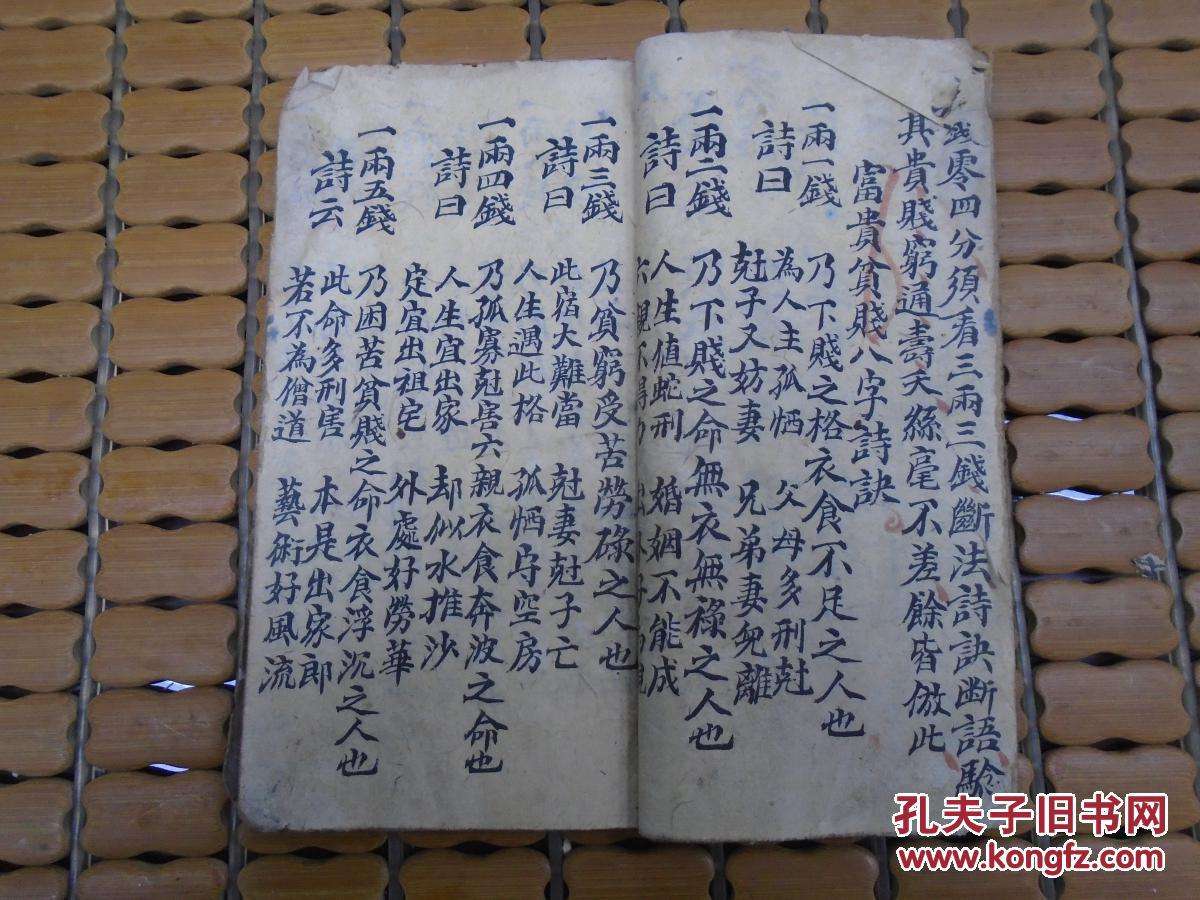 錢零四分須看三兩三錢斷法詩訣断語驗
其貴賤窮通壽夭絲毫不差餘皆倣此
富貴貧賤八字詩訣
一兩一錢 乃下賤之格衣食不足之人也
詩曰 為人主孤恓 父母多刑尅
尅子又妨妻 兄弟妻兒離
一兩二錢 乃下賤之命無衣無祿之人也
詩曰 人生值蛇刑 婚姻不能成
六親不得力
一兩三錢 乃貧窮受苦勞碌之人也
詩曰 此宿大難當 尅妻尅子亡
人生遇此格 孤恓守空房
一兩四錢 乃孤寡尅害六親衣食奔波之命也
詩曰 人生宜出家 却似水推沙
定宜出祖宅 外處好勞華
一兩五錢 乃困苦貧賤之命衣食浮沉之人也
詩云 此命多刑害 本是出家郎
若不為僧道 藝術好風流
孔夫子旧书网
www.kongfz.com